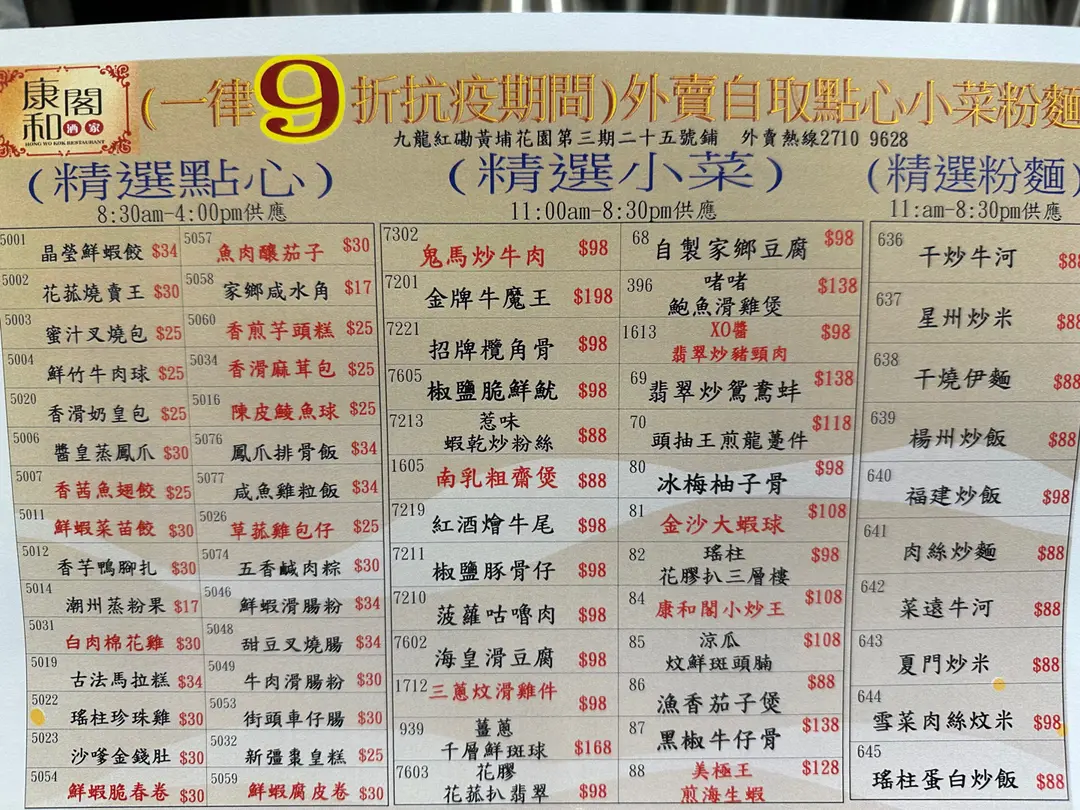 康和閣酒家
HONG WO KOK RESTAURANT
(一律9折抗疫期間)外賣自取點心小菜粉麵
九龍紅磡黃埔花園第三期二十五號鋪 外賣熱線2710 9628
(精選點心)
8:30am-4:00pm供應
5001 晶瑩鮮蝦餃 $34
5002 花菰燒賣王 $30
5003 蜜汁叉燒包 $25
5004 鮮竹牛肉球 $25
5020 香滑奶皇包 $25
5006 醬皇蒸鳳爪 $30
5007 香茜魚翅餃 $25
5011 鮮蝦菜苗餃 $30
5012 香芋鴨腳扎 $30
5014 潮州蒸粉果 $17
5031 白肉棉花雞 $30
5019 古法馬拉糕 $34
5022 瑤柱珍珠雞 $30
5023 沙嗲金錢肚 $30
5054 鮮蝦脆春卷 $30
5057 魚肉釀茄子 $30
5058 家鄉咸水角 $17
5060 香煎芋頭糕 $25
5034 香滑麻茸包 $25
5016 陳皮鯪魚球 $25
5076 鳳爪排骨飯 $34
5077 咸魚雞粒飯 $34
5026 草菰雞包仔 $25
5074 五香鹹肉粽 $30
5046 鮮蝦滑腸粉 $34
5048 甜豆叉燒腸 $34
5049 牛肉滑腸粉 $30
5053 街頭車仔腸 $30
5032 新疆棗皇糕 $25
5059 鮮蝦腐皮卷 $30
(精選小菜)
11:00am-8:30pm供應
7302 鬼馬炒牛肉 $98
7201 金牌牛魔王 $198
7221 招牌欖角骨 $98
7605 椒鹽脆鮮魷 $98
7213 惹味
蝦乾炒粉絲 $88
1605 南乳粗齋煲 $88
7219 紅酒燴牛尾 $98
7211 椒鹽豚骨仔 $98
7210 菠蘿咕嚕肉 $98
7602 海皇滑豆腐 $98
1712 三蔥炆滑雞件 $98
939 薑蔥
千層鮮斑球 $168
7603 花膠
花菰扒翡翠 $98
68 自製家鄉豆腐 $98
396 啫啫
鮑魚滑雞煲 $138
1613 XO醬
翡翠炒豬頸肉 $98
69 翡翠炒鴛鴦蚌 $138
70 頭抽王煎龍躉件 $118
80 冰梅柚子骨 $98
81 金沙大蝦球 $108
82 瑤柱
花膠扒三層樓 $98
84 康和閣小炒王 $108
85 涼瓜
炆鮮斑頭腩 $108
86 漁香茄子煲 $88
87 黑椒牛仔骨 $138
88 美極王
煎海生蝦 $128
(精選粉麵)
11:am-8:30pm供應
636 干炒牛河 $88
637 星州炒米 $88
638 干燒伊麵 $88
639 楊州炒飯 $88
640 福建炒飯 $98
641 肉絲炒麵 $88
642 菜遠牛河 $88
643 夏門炒米 $88
644 雪菜肉絲炆米 $98
645 瑤柱蛋白炒飯 $88